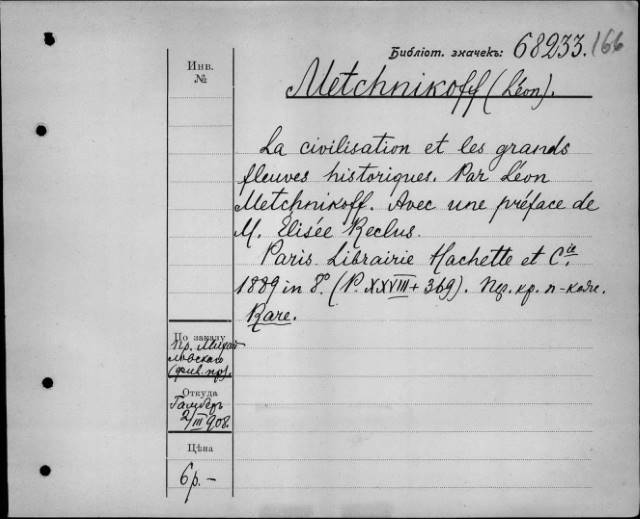 Библіот. значекъ: 68233. 166
Инв.
№
Metchnikoff (Léon).
La civilisation et les grands
fleuves historiques. Par Léon
Metchnikoff. Avec une préface de
M. Elisée Reclus.
Paris. Librairie Hachette et Cie.
1889 in 8°. (P. XXVIII + 369).
Rare.
По заказу
Пр. Михай
ловскаго
Откуда
2/III 908.
Цѣна
6р. -